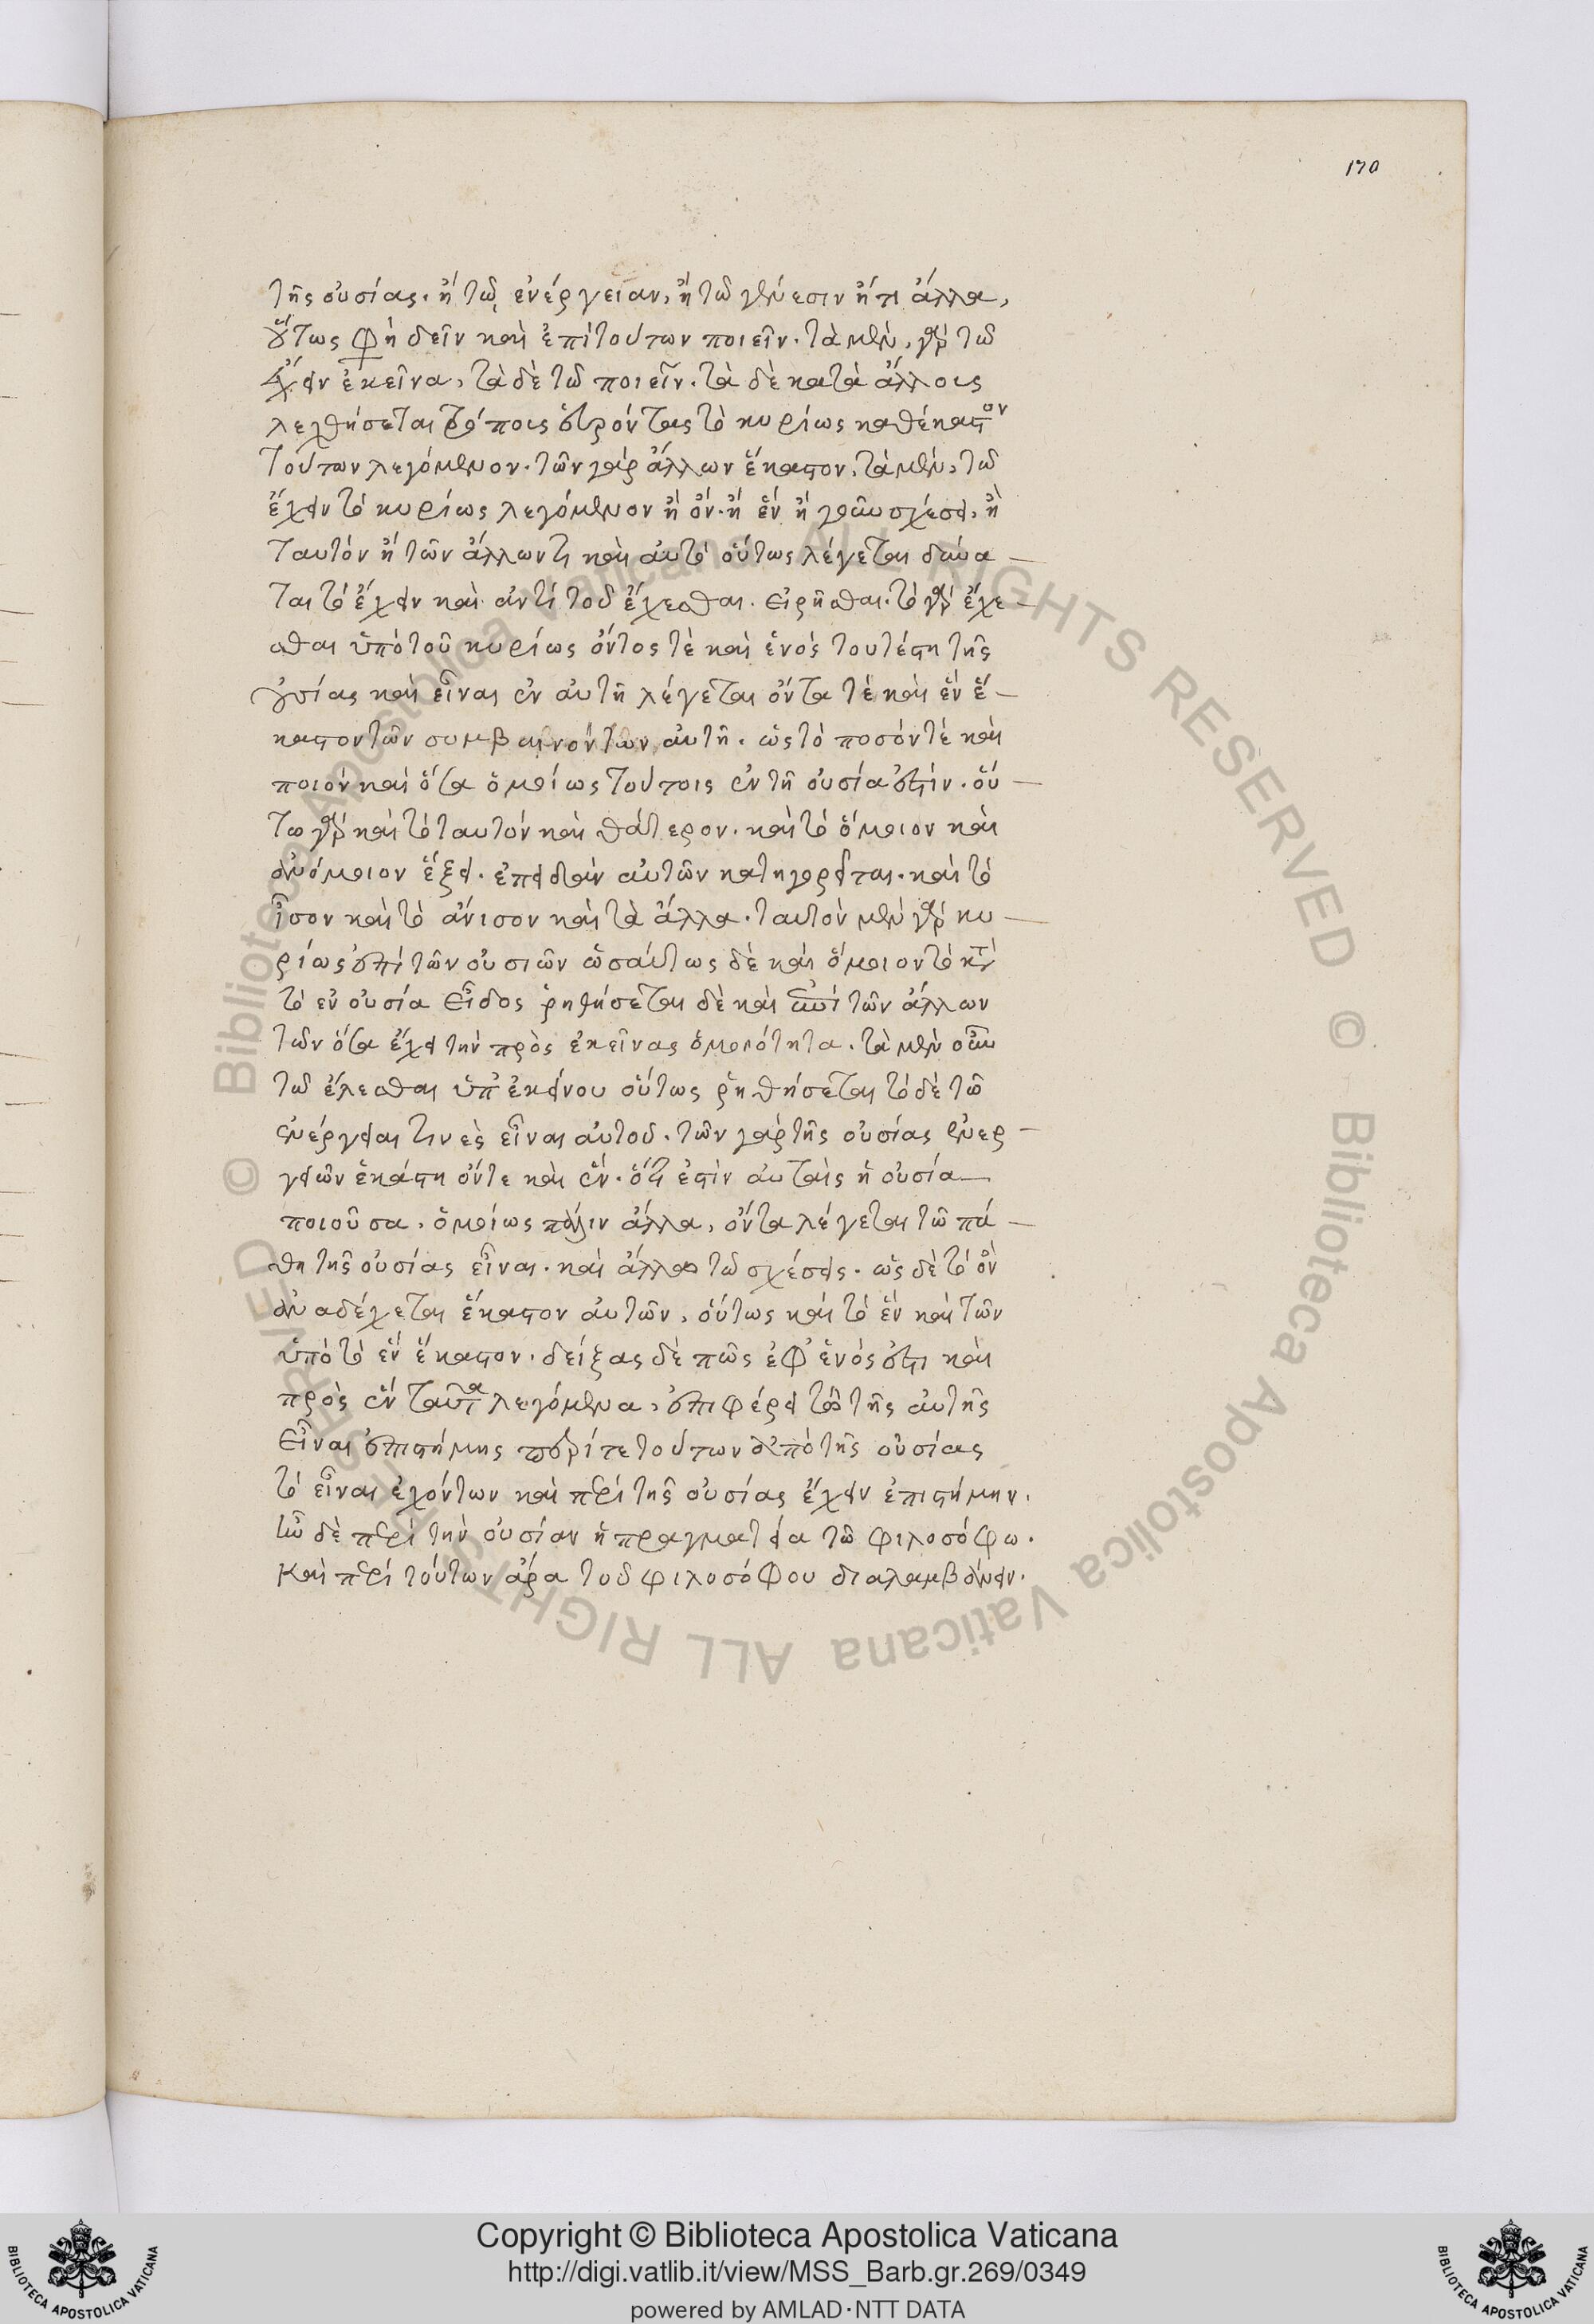 170
τῆς οὐσίας. ἢ τῷ ἐνέργειαν, ἢ τῷ γένεσιν ἤ τι ἄλλα,
οὕτως φὴ δεῖν καὶ ἐπὶ τούτων ποιεῖν. τὰ μὲν, γὰρ τῷ
ἔχειν ἐκεῖνα, τὰ δὲ τῷ ποιεῖν. τὰ δὲ κατὰ ἄλλους
λεχθήσεται τρόπους εὑρόντας τὸ κυρίως καθέκαστον
τούτων λεγόμενον. τῶν γὰρ ἄλλων ἕκαστον, τὰ μὲν, τῷ
ἔχειν τὸ κυρίως λεγόμενον ἢ ὄν. ἢ ἕν ἢ σχέσει, ἢ
ταυτόν ἢ τῶν ἄλλων τι καὶ αὐτὸ οὕτως λέγεται δύνα
ται τὸ ἔχειν καὶ ἀντὶ τοῦ ἔχεσθαι. εἰρῆσθαι. τὸ γὰρ ἔχε
σθαι ὑπὸ τοῦ κυρίως ὄντος τὲ καὶ ἑνὸς τουτέστι τῆς
οὐσίας καὶ εἶναι ἐν αὐτῇ λέγεται ὄντα τὲ καὶ ἓν ἕ
καστον τῶν συμβαινόντων αὐτῇ. ὡς τὸ ποσόν τὲ καὶ
ποιὸν καὶ ὅσα ὁμοίως τούτοις ἐν τῇ οὐσία ἐστίν. οὕ
τω γὰρ καὶ τὸ ταυτὸν καὶ θάτερον. καὶ τὸ ὅμοιον καὶ
ἀνόμοιον ἕξει. ἐπειδὰν αὐτῶν κατηγορεῖται. καὶ τὸ
ἶσον καὶ τὸ ἄνισον καὶ τὰ ἄλλα. ταυτὸν μὲν γὰρ κυ
ρίως ἐπὶ τῶν οὐσιῶν ὡσαύτως δὲ καὶ ὅμοιον τὸ κατὰ
τὸ ἐν οὐσία εἶδος ῥηθήσεται δὲ καὶ ἐπὶ τῶν ἄλλων
τῶν ὅσα ἔχει τὴν πρὸς ἐκείνας ὁμοιότητα. τὰ μὲν οὖν
τῷ ἔχεσθαι ὑπ' ἐκείνου οὕτως ῥηθήσεται τὸ δὲ τῷ
ἐνέργειαι τινὲς εἶναι αὐτοῦ. τῶν γὰρ τῆς οὐσίας ἐνερ
γειῶν ἑκάστη ὄν τε καὶ ἕν. ὅτι ἐστὶν αὐταῖς ἡ οὐσία
ποιοῦσα. ὁμοίως πάλιν ἄλλα, ὄντα λέγεται τῷ πά
θη τῆς οὐσίας εἶναι. καὶ ἄλλα τῷ σχέσεις. ὡς δὲ τὸ ὂν
ἀναδέχεται ἕκαστον αὐτῶν, οὕτως καὶ τὸ ἓν καὶ τῶν
ὑπὸ τὸ ἓν ἕκαστον. δείξας δὲ πῶς ἐφ' ἑνός ἐστι καὶ
πρὸς ἓν ταῦτα λεγόμενα, ἐπιφέρει τὸ τῆς αὐτῆς
εἶναι ἐπιστήμης περί τε τούτων ἀπὸ τῆς οὐσίας
τὸ εἶναι ἐχόντων καὶ περὶ τῆς οὐσίας ἔχειν ἐπιστήμην.
ἦν δὲ περὶ τὴν οὐσίαν ἡ πραγματεία τῷ φιλοσόφω.
καὶ περὶ τούτων ἄρα τοῦ φιλοσόφου διαλαμβάνειν.
© Biblioteca Apostolica Vaticana ALL RIGHTS RESERVED
© Biblioteca Apostolica Vaticana ALL RIGHTS RESERVED
Copyright © Biblioteca Apostolica Vaticana
http://digi.vatlib.it/view/MSS_Barb.gr.269/0349
powered by AMLAD·NTT DATA
BIBLIOTECA APOSTOLICA VATICANA
BIBLIOTECA APOSTOLICA VATICANA